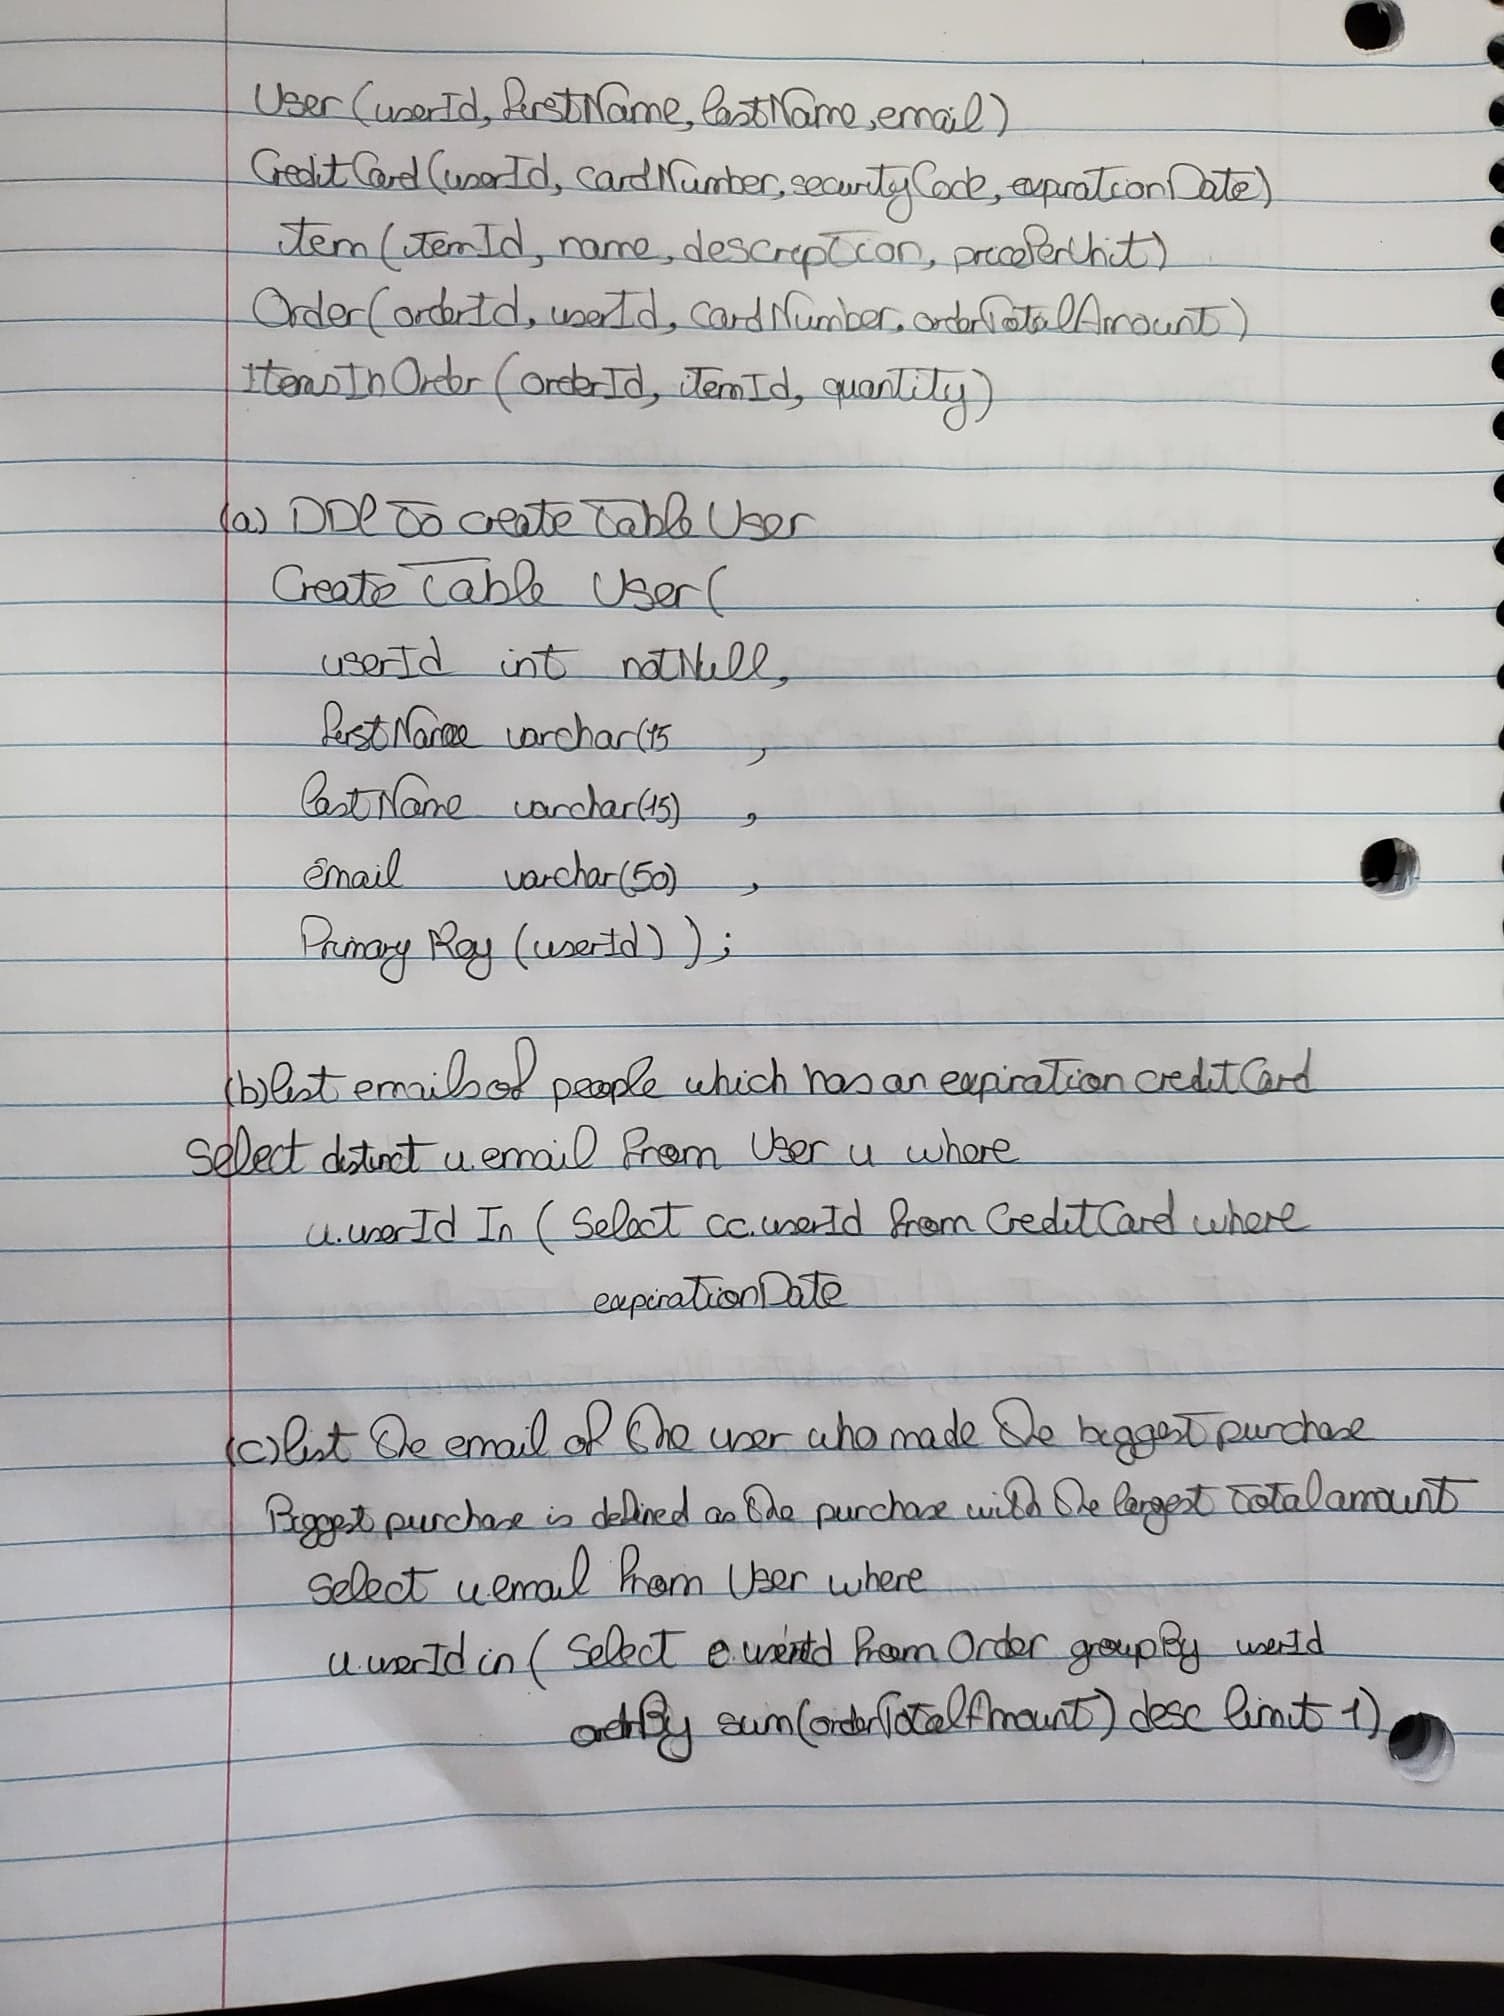 User (userId, firstName, lastName, email)
CreditCard (userId, cardNumber, securityCode, expirationDate)
item (itemId, name, description, pricePerUnit)
Order (orderId, userId, cardNumber, orderTotalAmount)
ItemsInOrder (orderId, itemId, quantity)
(a) DDl to create table User
Create Table User (
userId int notNull,
firstName varchar(15 ,
lastName varchar(15) ,
email varchar(50) ,
Primary Key (userId) ) ;
(b) list emails of people which has an expiration creditCard
Select distinct u.email from User u where
u.userId In ( Select cc.userId from CreditCard where
expirationDate
(c) list the email of the user who made the biggest purchase
Biggest purchase is defined as the purchase with the largest total amount
Select u.email from User where
u.userId in ( Select o.userId from Order groupBy userId
orderBy sum(orderTotalAmount) desc limit 1)